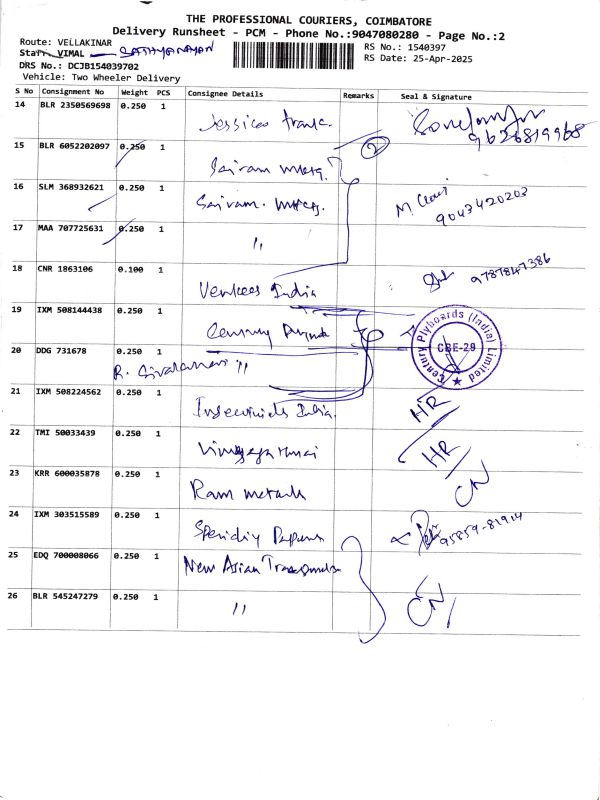 THE PROFESSIONAL COURIERS, COIMBATORE
Delivery Runsheet - PCM - Phone No.:9047080280 - Page No.:2
Route: VELLAKINAR
RS No.: 1540397
Staff: VIMAL
RS Date: 25-Apr-2025
DRS No.: DCJB154039702
Vehicle: Two Wheeler Delivery
S No Consignment No Weight PCS Consignee Details Remarks Seal & Signature
14 BLR 2350569698 0.250 1 Jessica 9626819968
15 BLR 6052202097 0.250 1 Sairam 2
16 SLM 368932621 0.250 1 Sairam. M. 9043420203
17 MAA 707725631 0.250 1 "
18 CNR 1863106 0.100 1 India 9787847386
19 IXM 508144438 0.250 1 Century
Century Plyboards (India) Limited
CBE-29
20 DDG 731678 0.250 1 "
R.
21 IXM 508224562 0.250 1 India. HR
22 TMI 50033439 0.250 1 HR
23 KRR 600035878 0.250 1 Ram metals CN
24 IXM 303515589 0.250 1 95859-81914
25 EDQ 700008066 0.250 1 New Asian
26 BLR 545247279 0.250 1 " CN